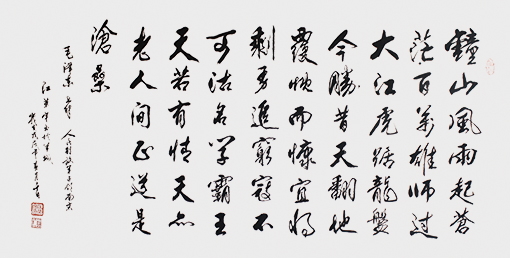 鐘山風雨起蒼
茫百萬雄師過
大江虎踞龍盤
今勝昔天翻地
覆慨而慷宜將
剩勇追窮寇不
可沽名學霸王
天若有情天亦
老人間正道是
滄桑
毛澤東 人民解放軍占領南京